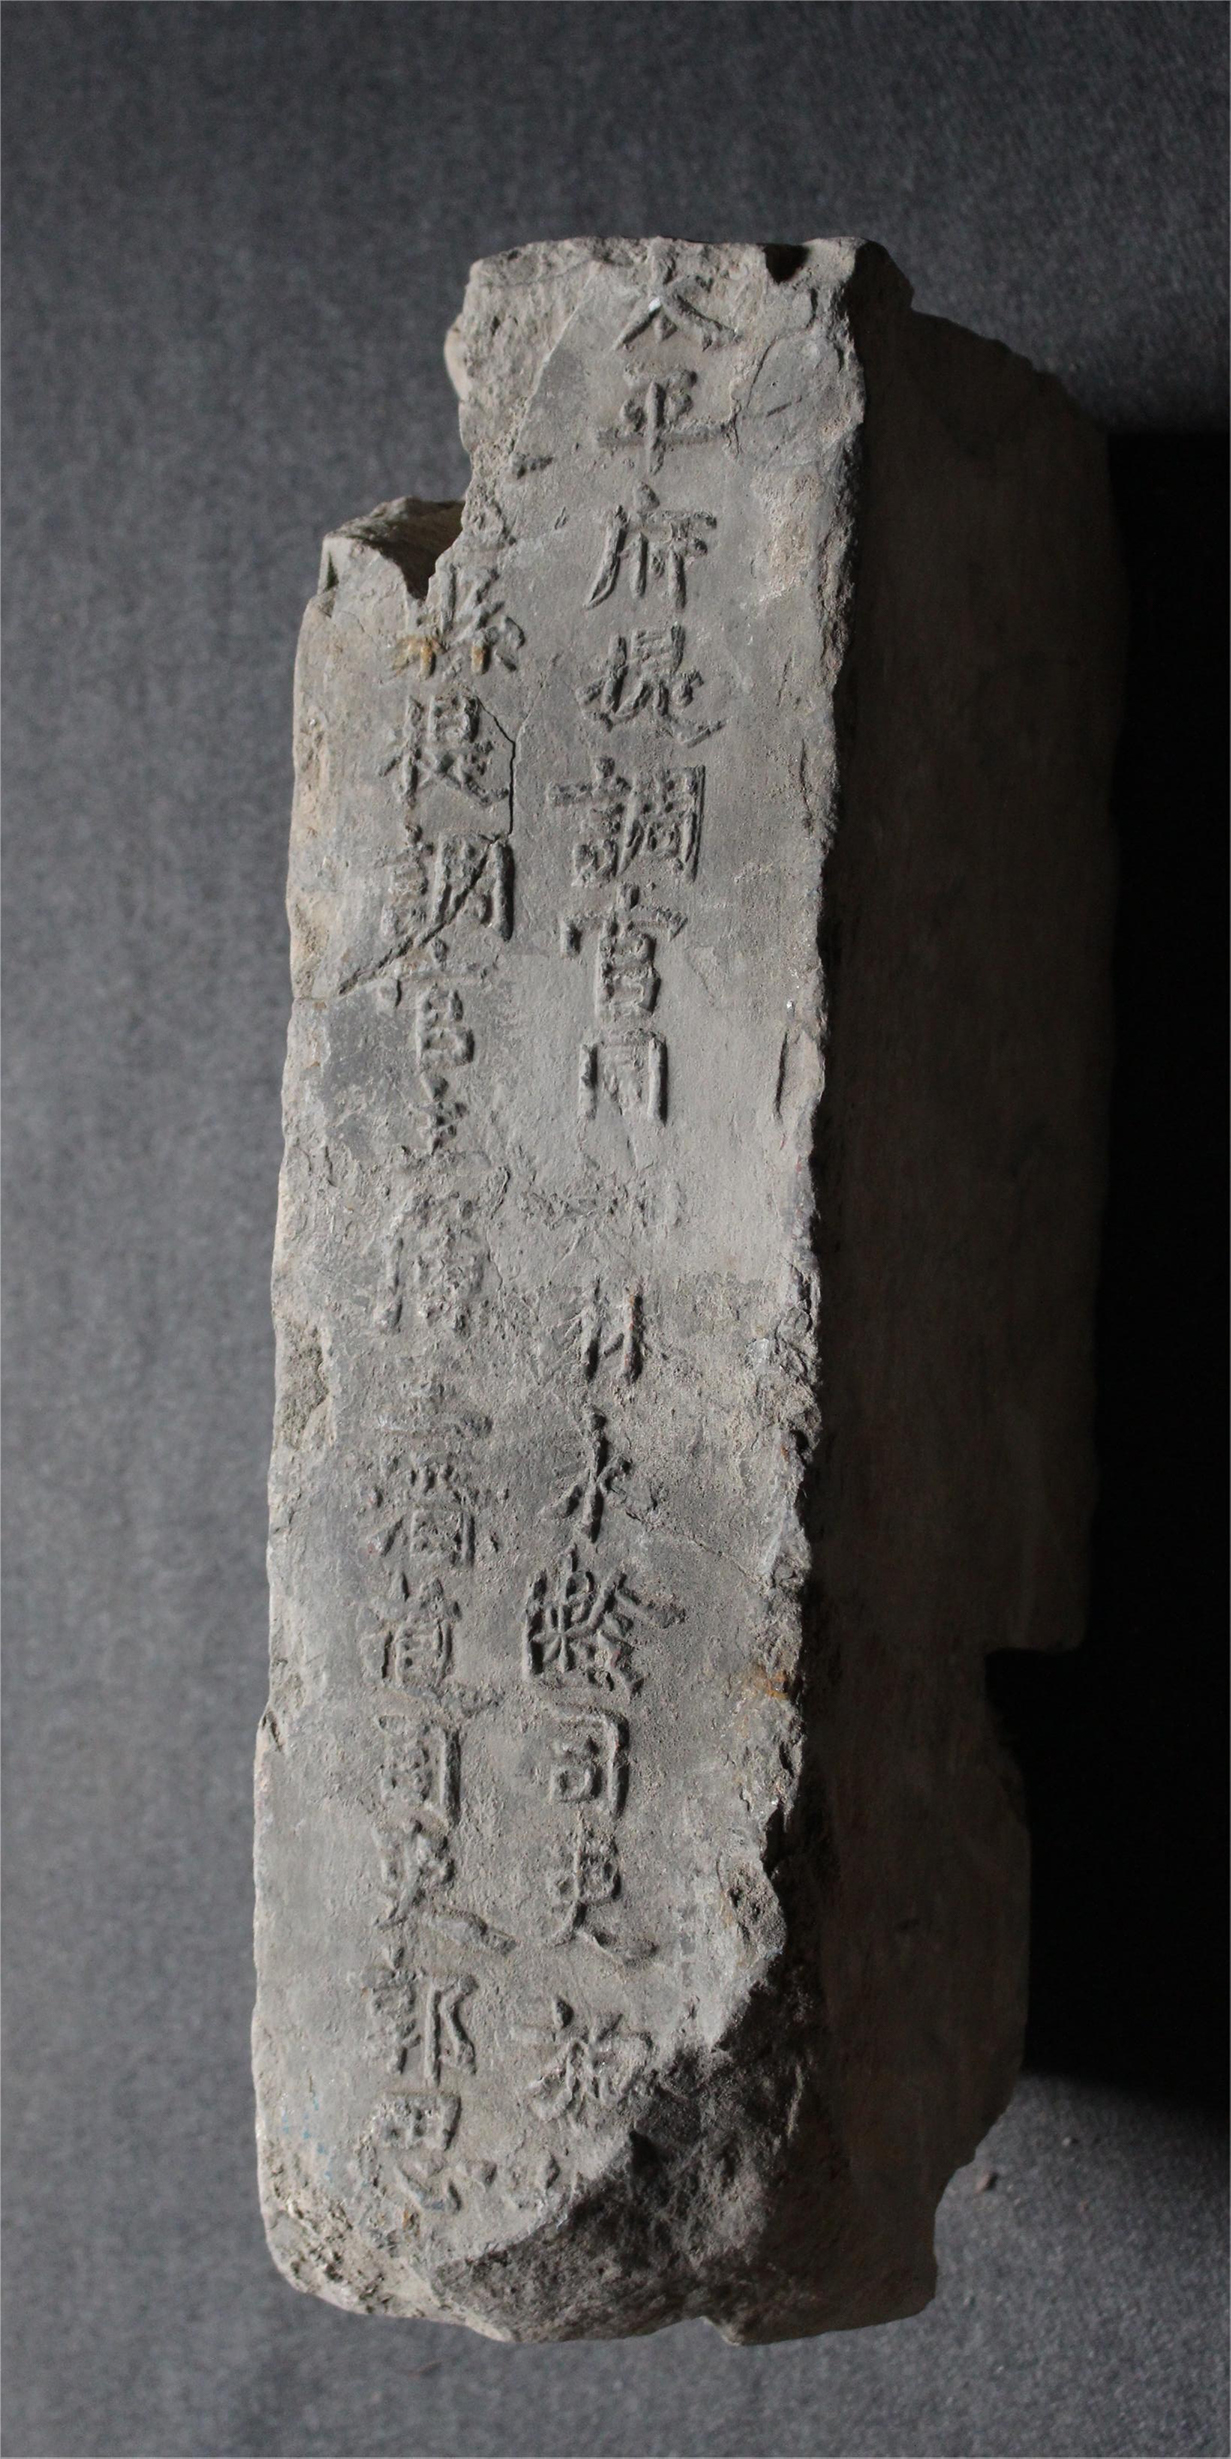 太平府提調官同知林水齡司吏施
縣提調官主簿洞道司吏郭思